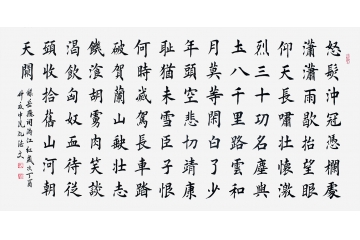 怒髮沖冠憑欄處
瀟瀟雨歇抬望眼
仰天長嘯壯懷激
烈三十功名塵與
土八千里路雲和
月莫等閒白了少
年頭空悲切靖康
恥猶未雪臣子恨
何時滅駕長車踏
破賀蘭山缺壯志
饑餐胡虜肉笑談
渴飲匈奴血待從
頭收拾舊山河朝
天闕
錄岳飛詞滿江紅歲次丁酉